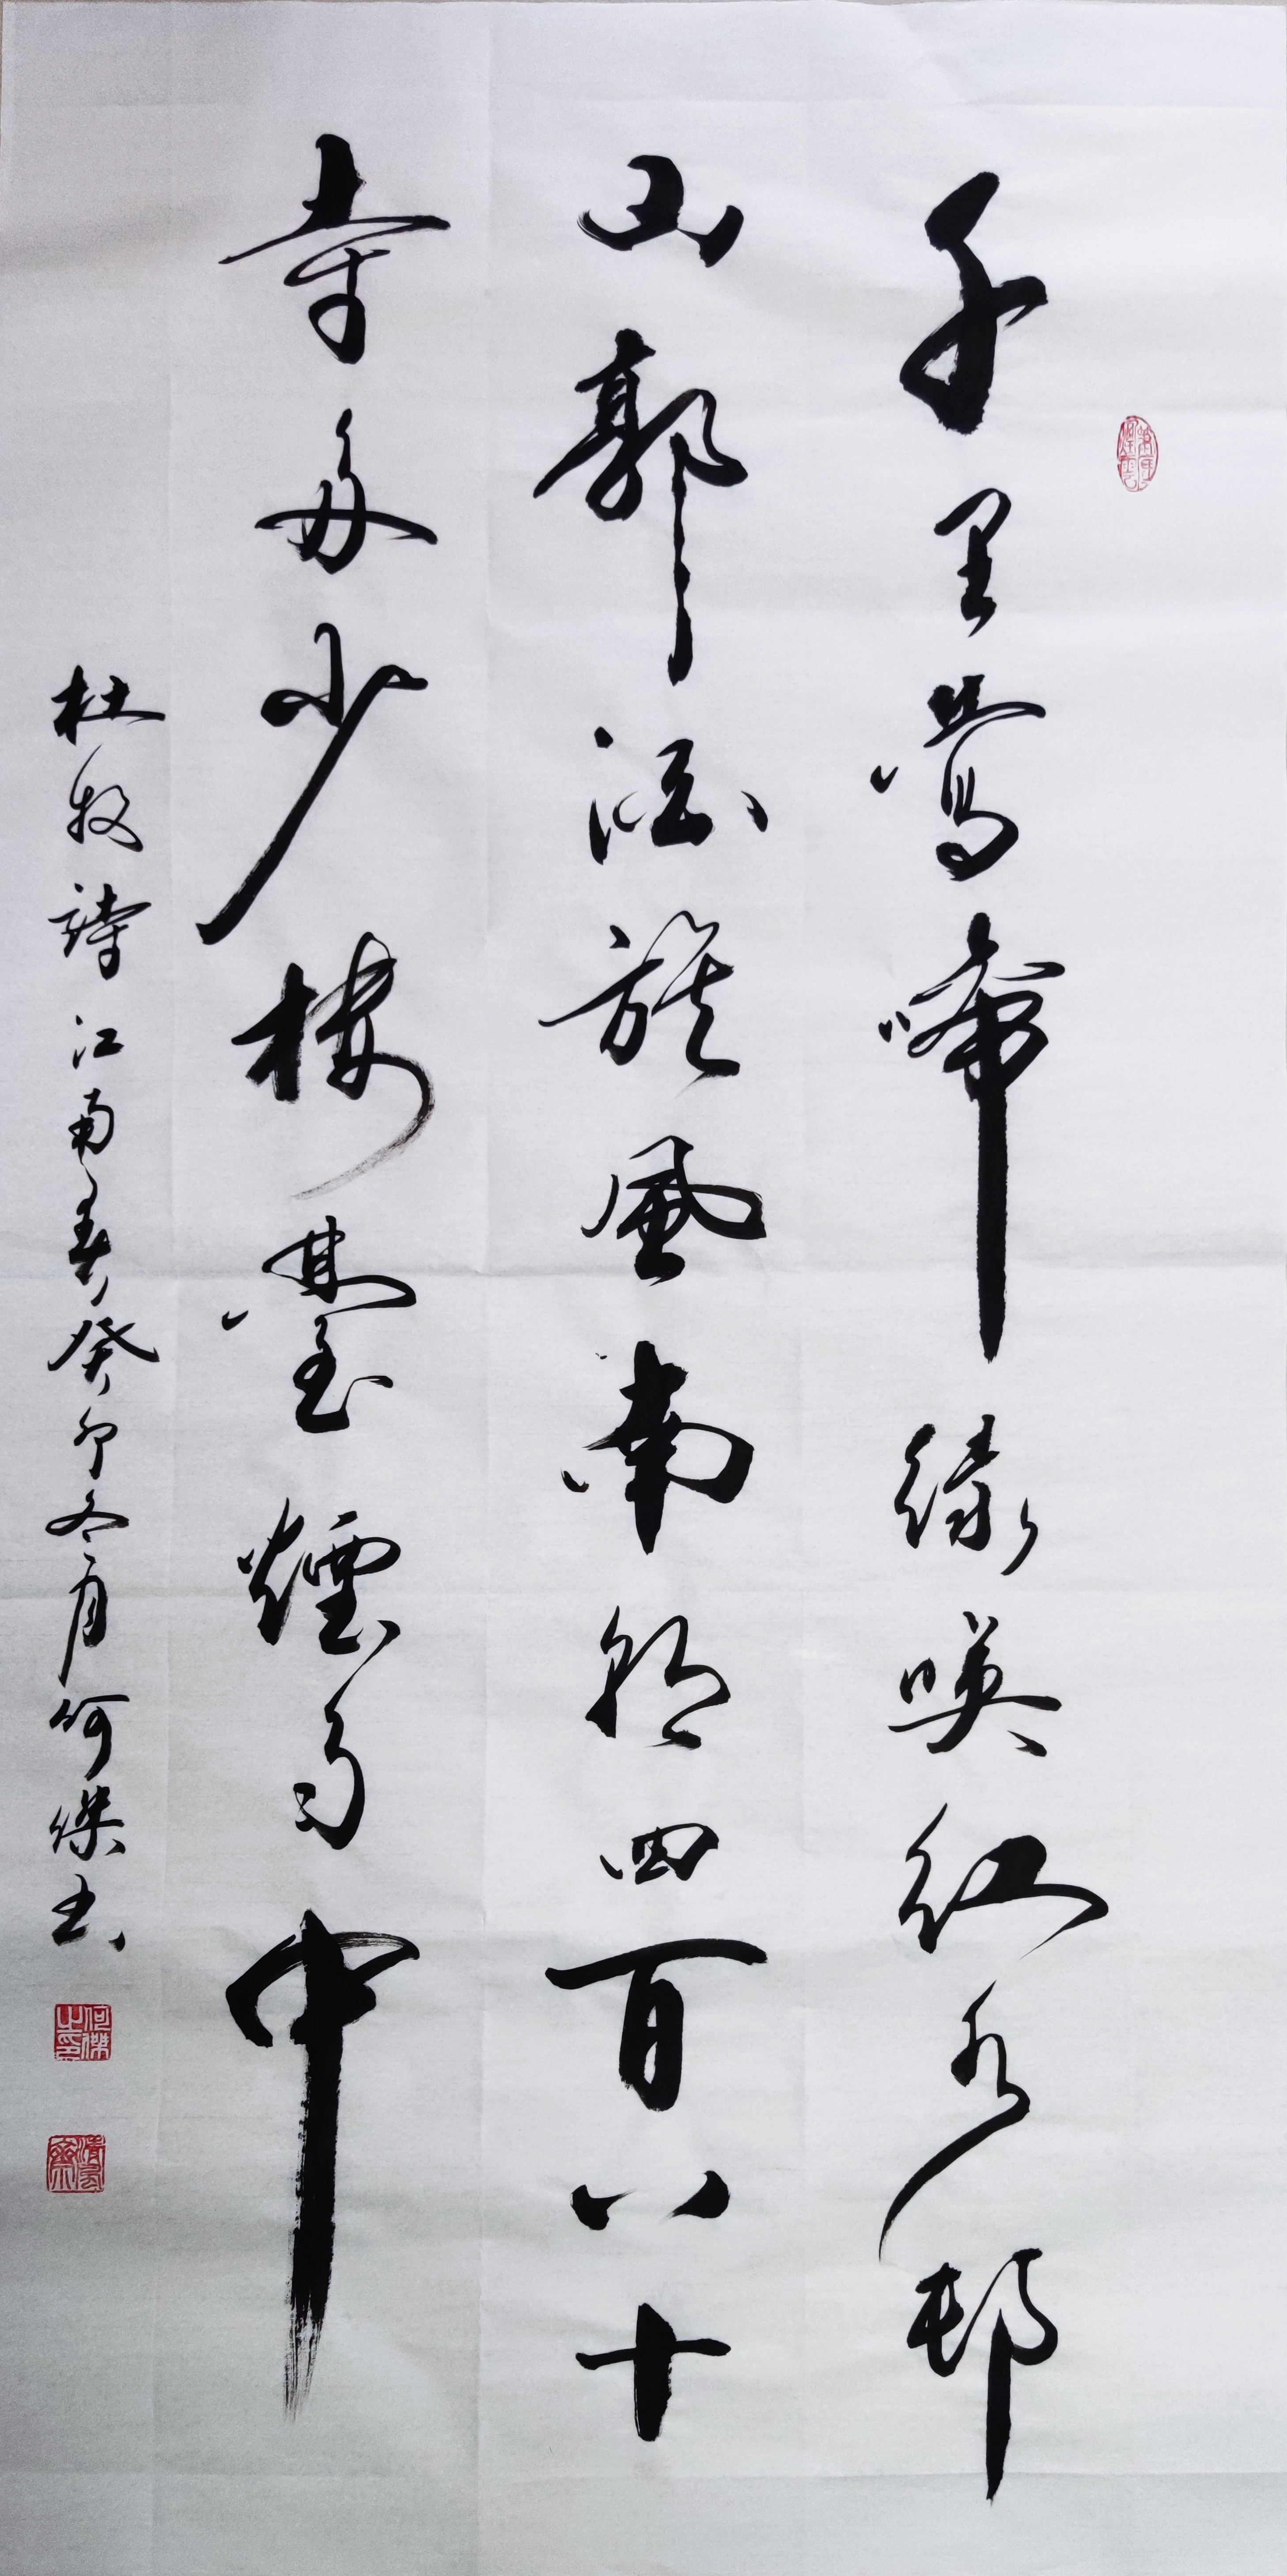 千里鶯啼綠暎紅水邨
山郭酒旗風南朝四百八十
寺多少樓臺煙雨中
杜牧詩江南春癸卯冬月何傑書
何傑之印